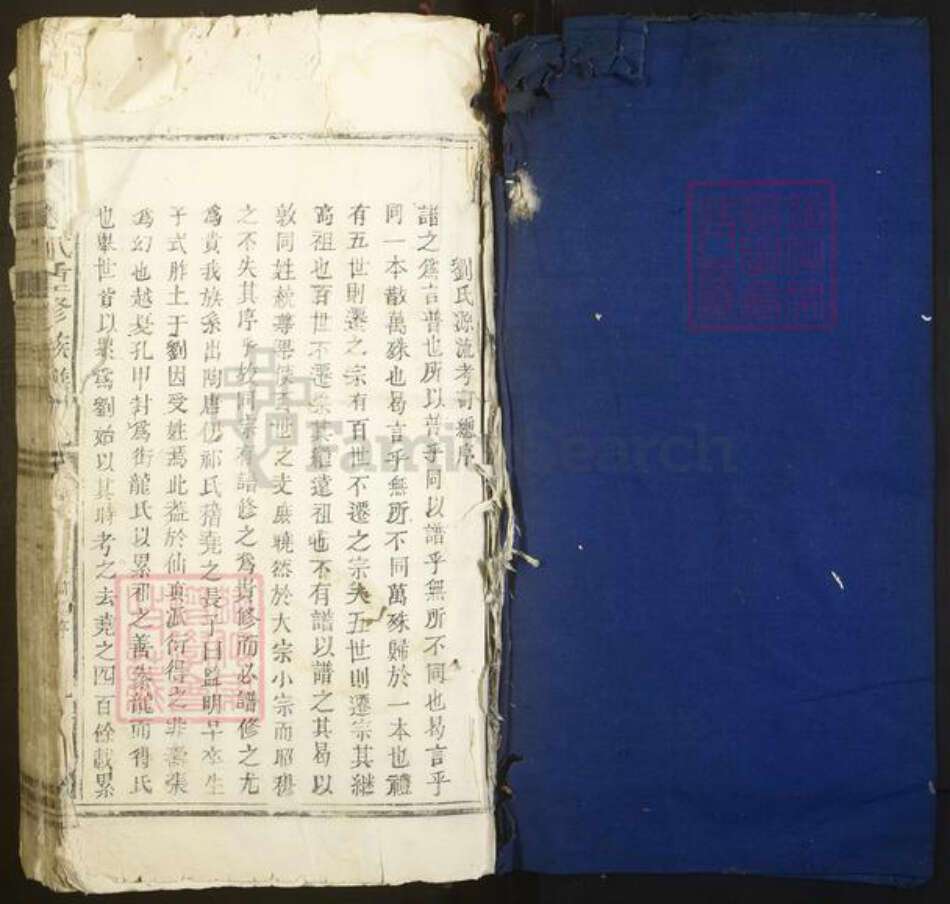 劉氏源流考訂總序
譜之爲言普也所以普乎同以譜乎無所不同也曷言乎
同一本散萬殊也曷言乎無所不同萬殊歸於一本也禮
有五世則遷之宗有百世不遷之宗夫五世則遷宗其繼
高祖也百世不遷宗其繼遠祖也不有譜以譜之其曷以
敦同姓統尊卑使百世之支庶曉然於大宗小宗而昭穆
之不失其序乎故同宗有譜修之爲貴修而必譜修之尤
爲貴我族系出陶唐伊祁氏稽堯之長子曰監明早卒生
子式胙土于劉因受姓焉此蓋於仙輿派衍得之非譸張
爲幻也越夏孔甲封爲御龍氏以累祖之善豢龍而得氏
也舉世皆以累爲劉始以其時考之去堯之四百餘載累
氏重修族譜
FamilySearch